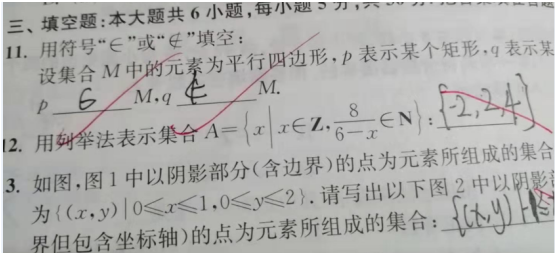 三、填空题:本大题共6小题,每小题5分,共
11. 用符号“∈”或“∉”填空:
设集合M中的元素为平行四边形,p表示某个矩形,q表示某
p 6 M,q ∉ M.
12. 用列举法表示集合A={x|x∈Z,8/(6−x)∈N}:{-2,2,4}
3. 如图,图1中以阴影部分(含边界)的点为元素所组成的集合
为{(x,y)|0≤x≤1,0≤y≤2}.请写出以下图2中以阴影
界但包含坐标轴)的点为元素所组成的集合:{(x,y)|